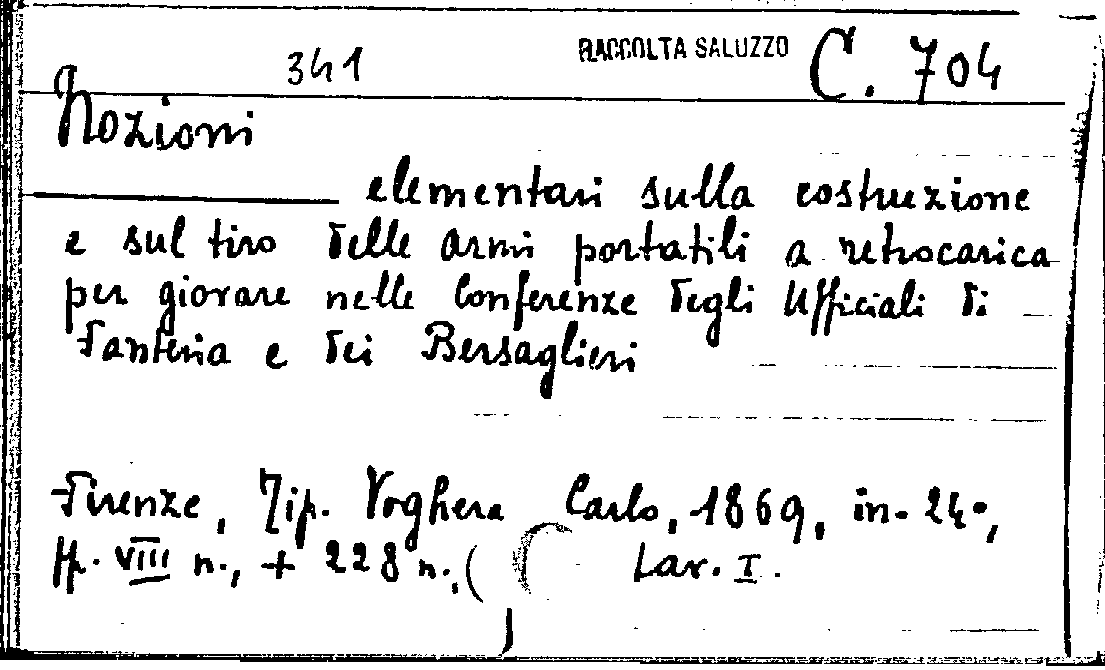 341 RACCOLTA SALUZZO C. 704
Nozioni
elementari sulla costruzione
e sul tiro delle armi portatili a retrocarica
per giovare nelle Conferenze degli Ufficiali di
Fanteria e dei Bersaglieri
Firenze, Tip. Voghera Carlo, 1869, in-24°,
pp. VIII n., + 228 n., ( Lav. I.